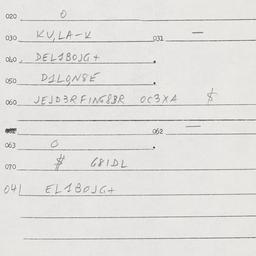 020 0
030 KU,LA-K 031 —
040. DEL1BOJG+ .
050 D1LQNSE .
060 JEJD3RFING8BR OC3XA $
062 —
063 0 .
070 $ G8IDL
041 EL1BOJG+